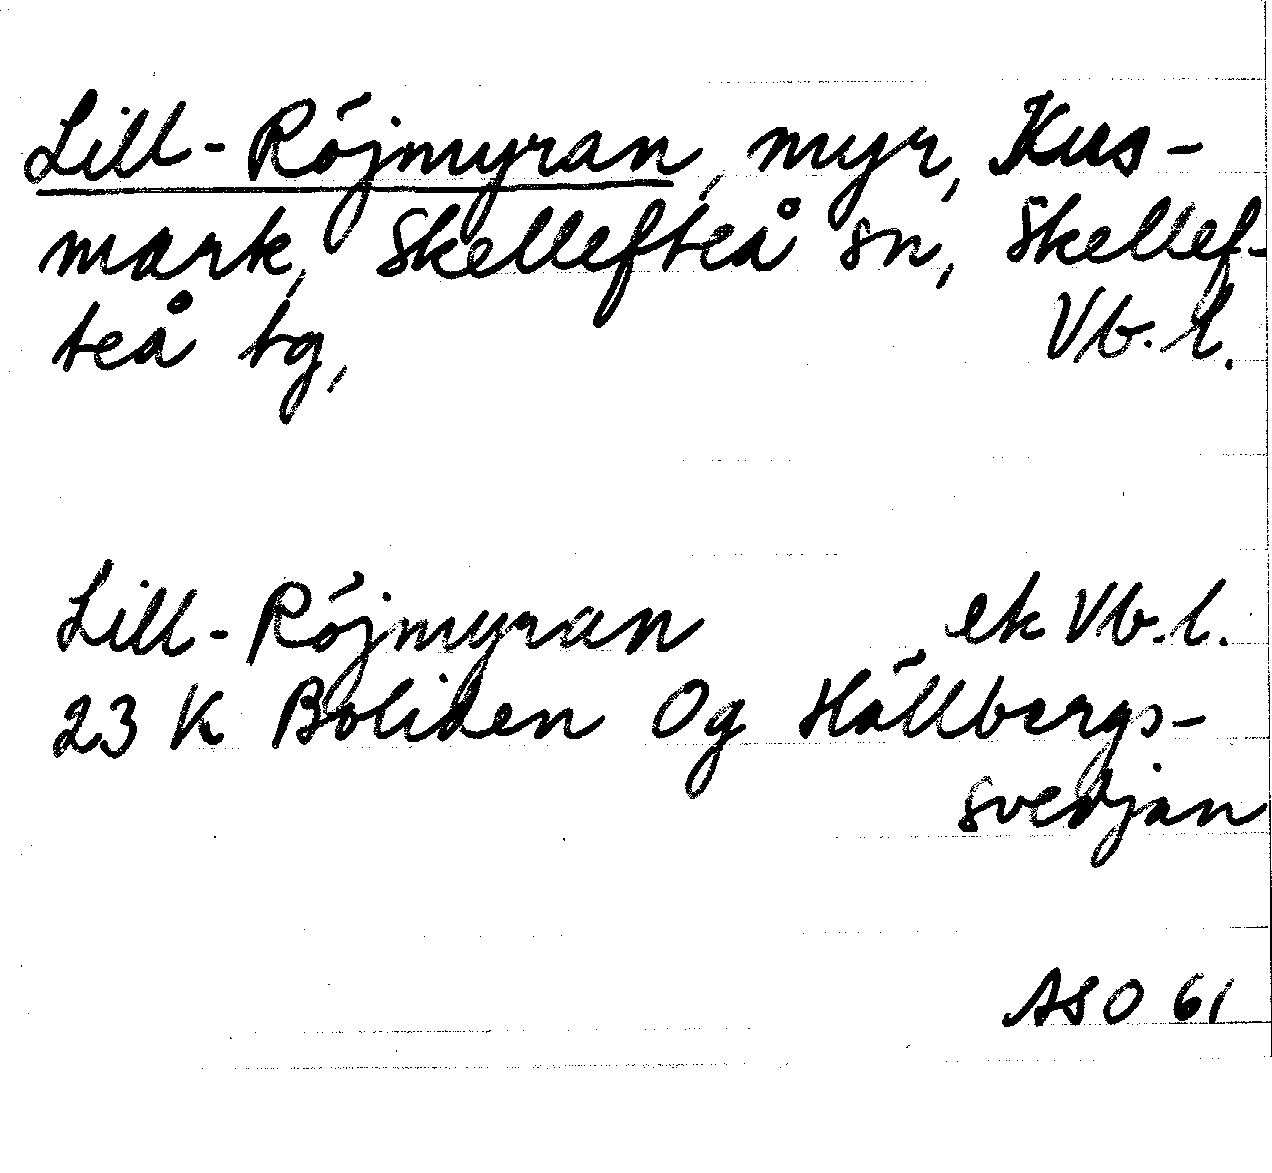 Lill-Röjmyran, myr, Kus-
mark, Skellefteå sn, Skellef-
teå tg, Vb.l.
Lill-Röjmyran ek Vb.l.
23 K Boliden Og Hällbergs-
svedjan
ASO 61